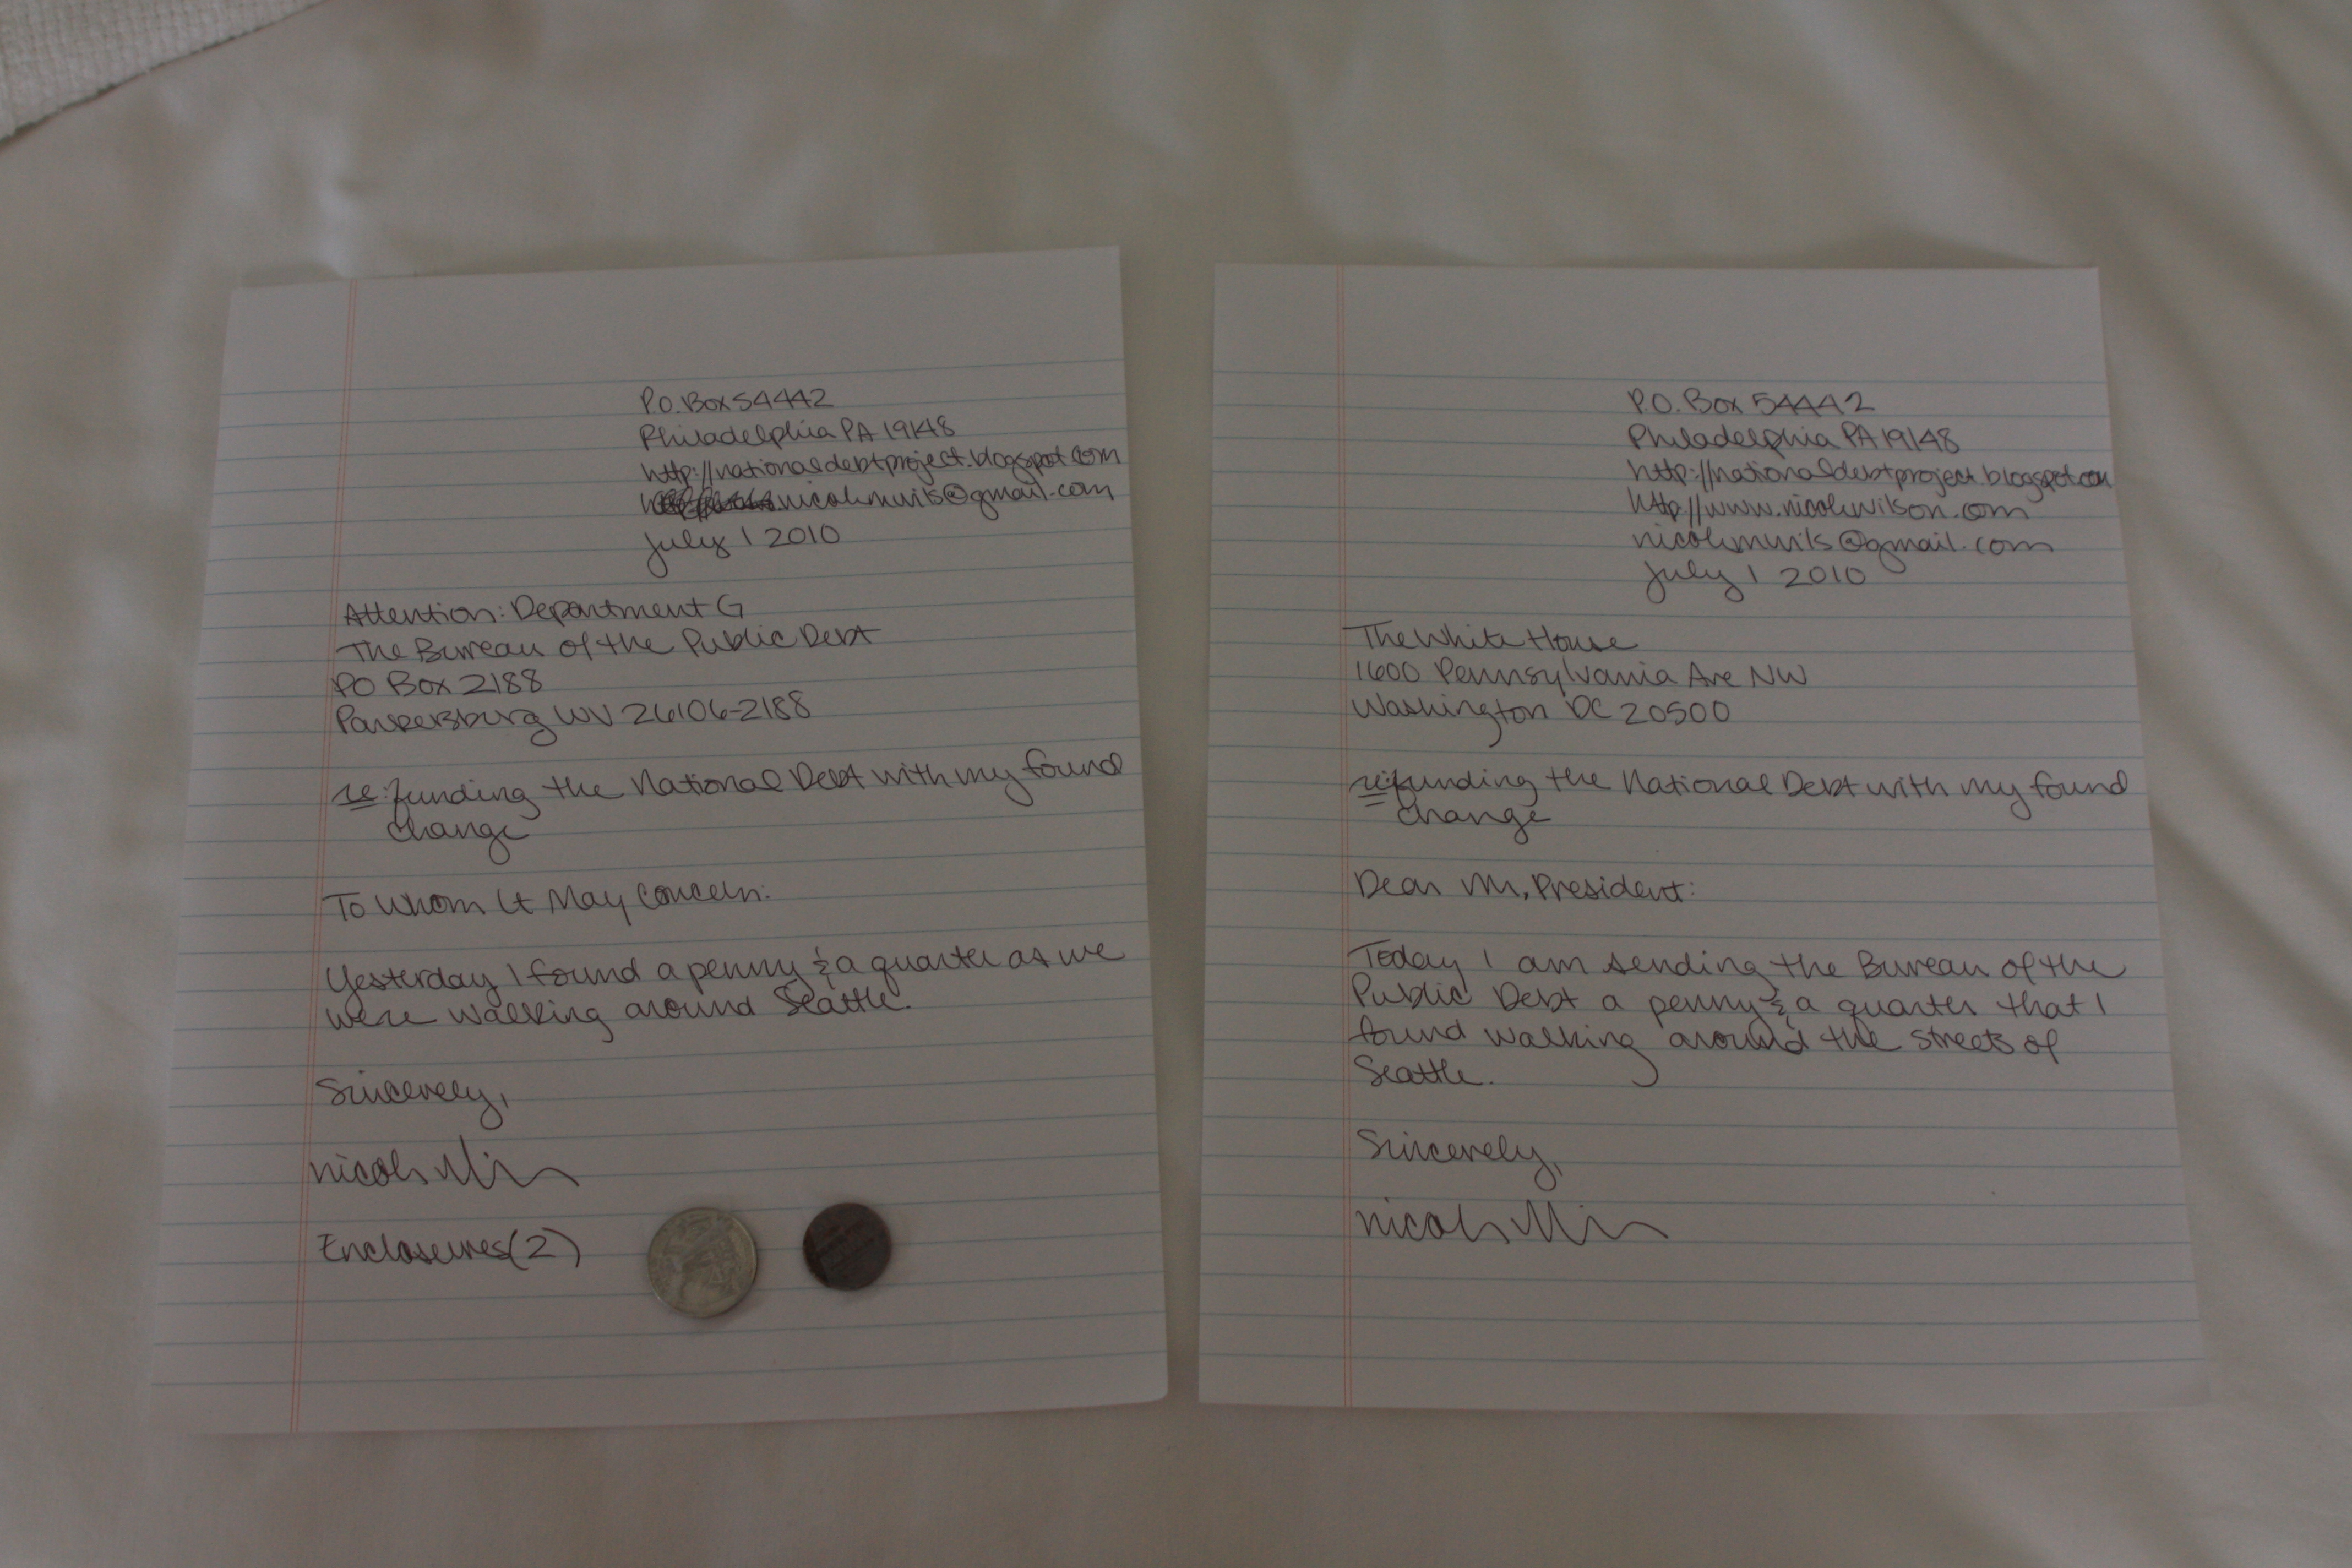 P.O. Box 54442
Philadelphia PA 19148
http://nationaldebtproject.blogspot.com
nicolemwils@gmail.com
July 1 2010
Attention: Department G
The Bureau of the Public Debt
PO Box 2188
Parkersburg WV 26106-2188
re: funding the National Debt with my found
change
To Whom It May Concern:
Yesterday I found a penny & a quarter as we
were walking around Seattle.
Sincerely,
nicole
Enclosures (2)
P.O. Box 54442
Philadelphia PA 19148
http://nationaldebtproject.blogspot.com
http://www.nicolewilson.com
nicolemwils@gmail.com
July 1 2010
The White House
1600 Pennsylvania Ave NW
Washington DC 20500
re: funding the National Debt with my found
change
Dear Mr. President:
Today I am sending the Bureau of the
Public Debt a penny & a quarter that I
found walking around the streets of
Seattle.
Sincerely,
nicole